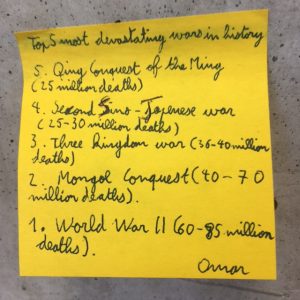 Top 5 most devastating wars in history
5. Qing Conquest of the Ming
(25 million deaths)
4. Second Sino-Japenese war
(25-30 million deaths)
3. Three Kingdom war (36-40 million
deaths)
2. Mongol Conquest (40-70
million deaths).
1. World War II (60-85 million
deaths).
Omar